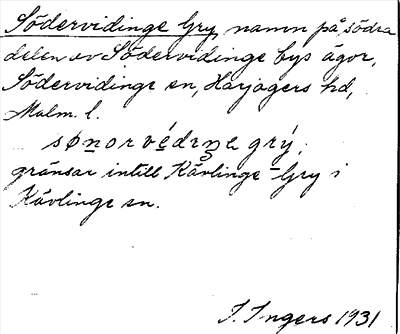 Södervidinge Gry, namn på södra
delen av Södervidinge bys ägor,
Södervidinge sn, Harjagers hd,
Malm. l.
sønorvédeŋe grý,
gränsar intill Kävlinge-Gry i
Kävlinge sn.
I. Ingers 1931